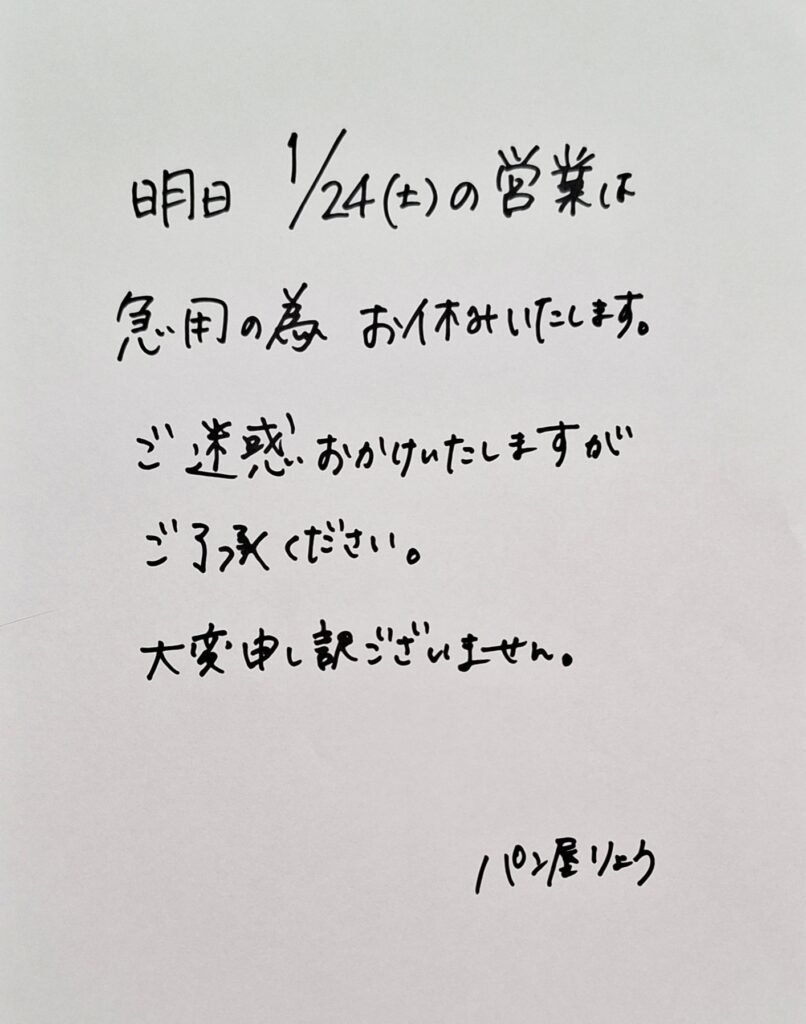 明日 1/24(土)の営業は
急用の為 お休みいたします。
ご迷惑おかけいたしますが
ご了承ください。
大変申し訳ございません。
パン屋りょう